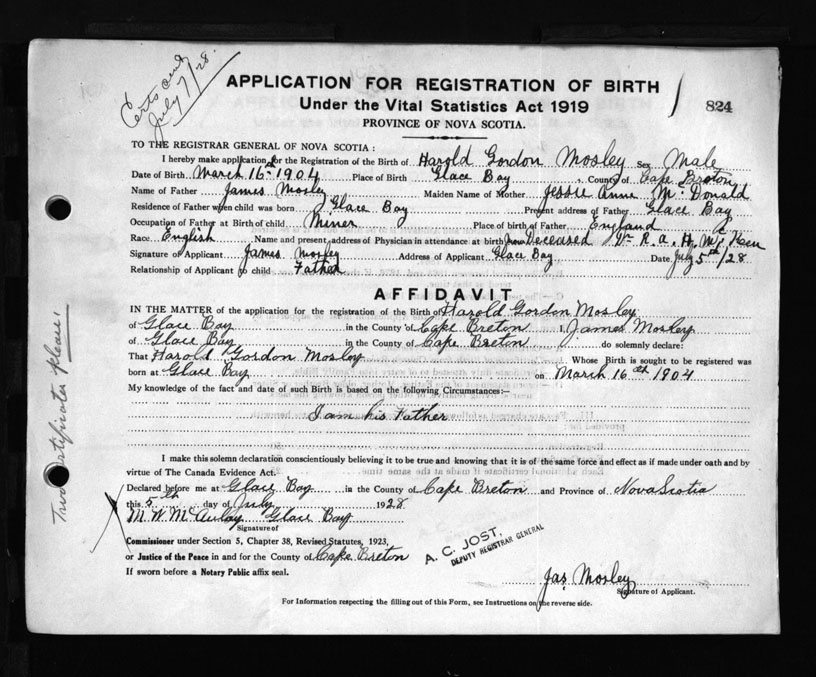 Certs sent
July 7/28.
APPLICATION FOR REGISTRATION OF BIRTH
Under the Vital Statistics Act 1919
824
PROVINCE OF NOVA SCOTIA.
TO THE REGISTRAR GENERAL OF NOVA SCOTIA :
I hereby make application for the Registration of the Birth of Harold Gordon Mosley Sex Male
Date of Birth March 16th 1904 Place of Birth Glace Bay County of Cape Breton
Name of Father James Mosley Maiden Name of Mother Jessie Anne McDonald
Residence of Father when child was born Glace Bay Present address of Father Glace Bay
Occupation of Father at Birth of child Miner Place of birth of Father England
Race English Name and present address of Physician in attendance at birth now Deceased Dr R. A. H. McKeen
Signature of Applicant James Mosley Address of Applicant Glace Bay Date July 5th/28
Relationship of Applicant to child Father
AFFIDAVIT
IN THE MATTER of the application for the registration of the Birth of Harold Gordon Mosley
of Glace Bay in the County of Cape Breton I, James Mosley
of Glace Bay in the County of Cape Breton do solemnly declare:
That Harold Gordon Mosley Whose Birth is sought to be registered was
born at Glace Bay on March 16th 1904
My knowledge of the fact and date of such Birth is based on the following Circumstances:-
I am his Father
I make this solemn declaration conscientiously believing it to be true and knowing that it is of the same force and effect as if made under oath and by
virtue of The Canada Evidence Act.
Declared before me at Glace Bay in the County of Cape Breton and Province of Nova Scotia
this 5th day of July 1928
M. W. McAulay Glace Bay
Signature of
Commissioner under Section 5, Chapter 38, Revised Statutes, 1923,
or Justice of the Peace in and for the County of Cape Breton
If sworn before a Notary Public affix seal.
A. C. JOST,
DEPUTY REGISTRAR GENERAL
Jas. Mosley
Signature of Applicant.
For Information respecting the filling out of this Form, see Instructions on the reverse side.
Two Certificates please!